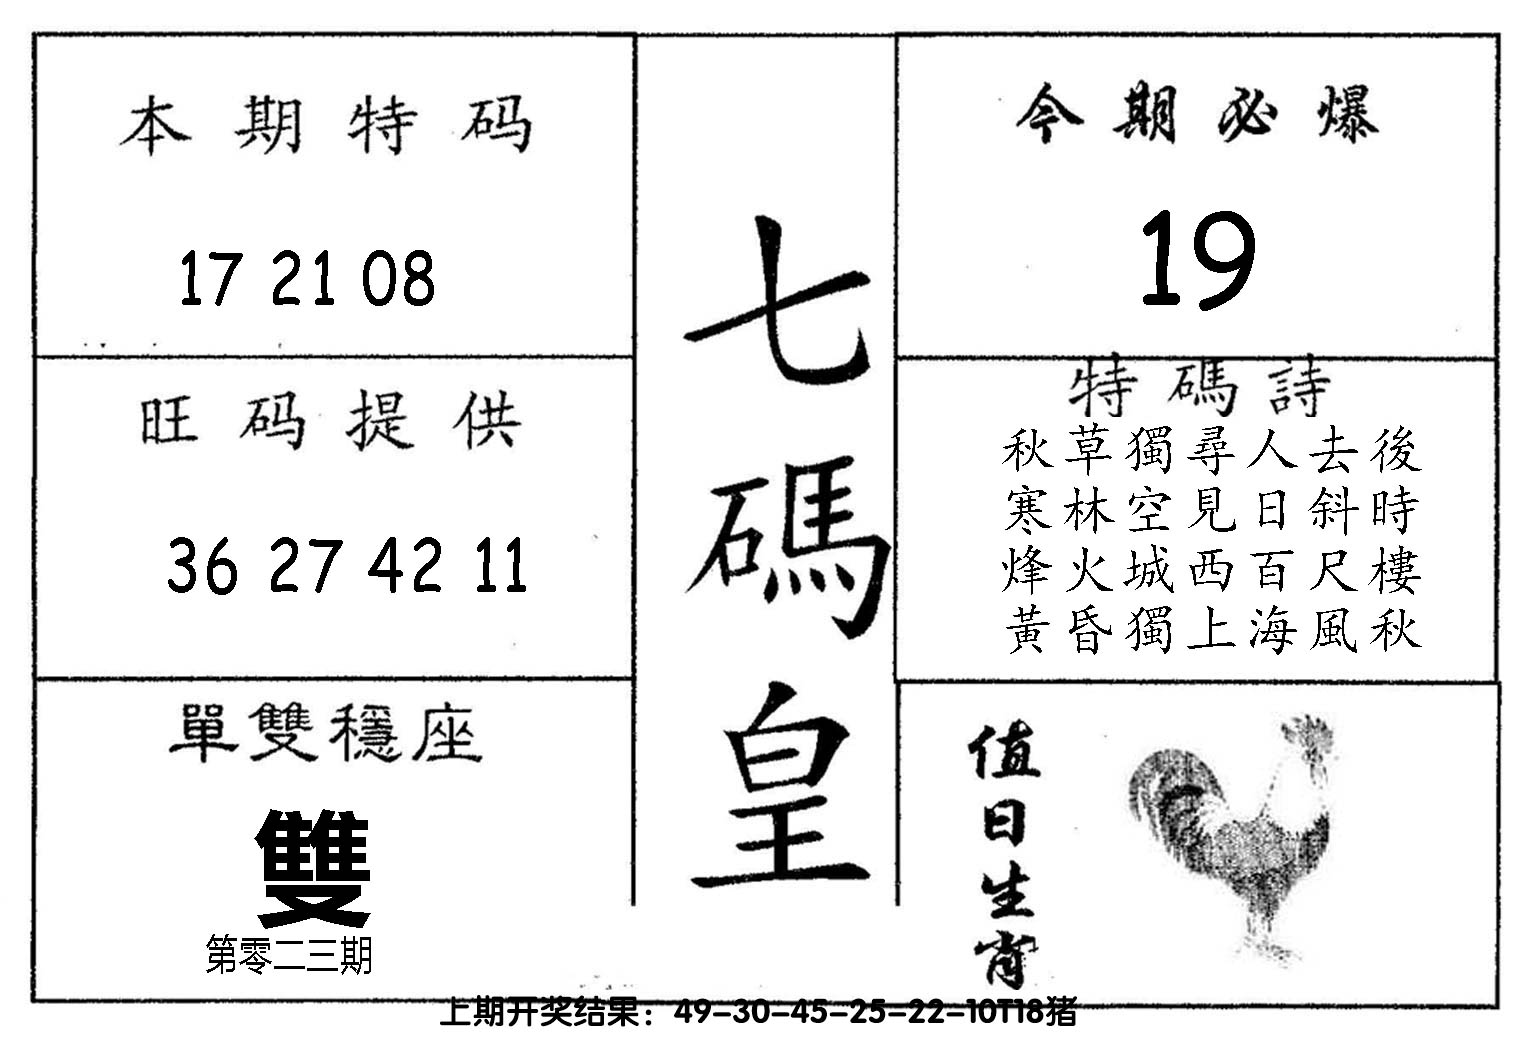 本期特码
17 21 08
旺码提供
36 27 42 11
單雙穩座
雙
第零二三期
七碼皇
今期必爆
19
特碼詩
秋草獨尋人去後
寒林空見日斜時
烽火城西百尺樓
黃昏獨上海風秋
值日生肖
上期开奖结果：49-30-45-25-22-10T18猪